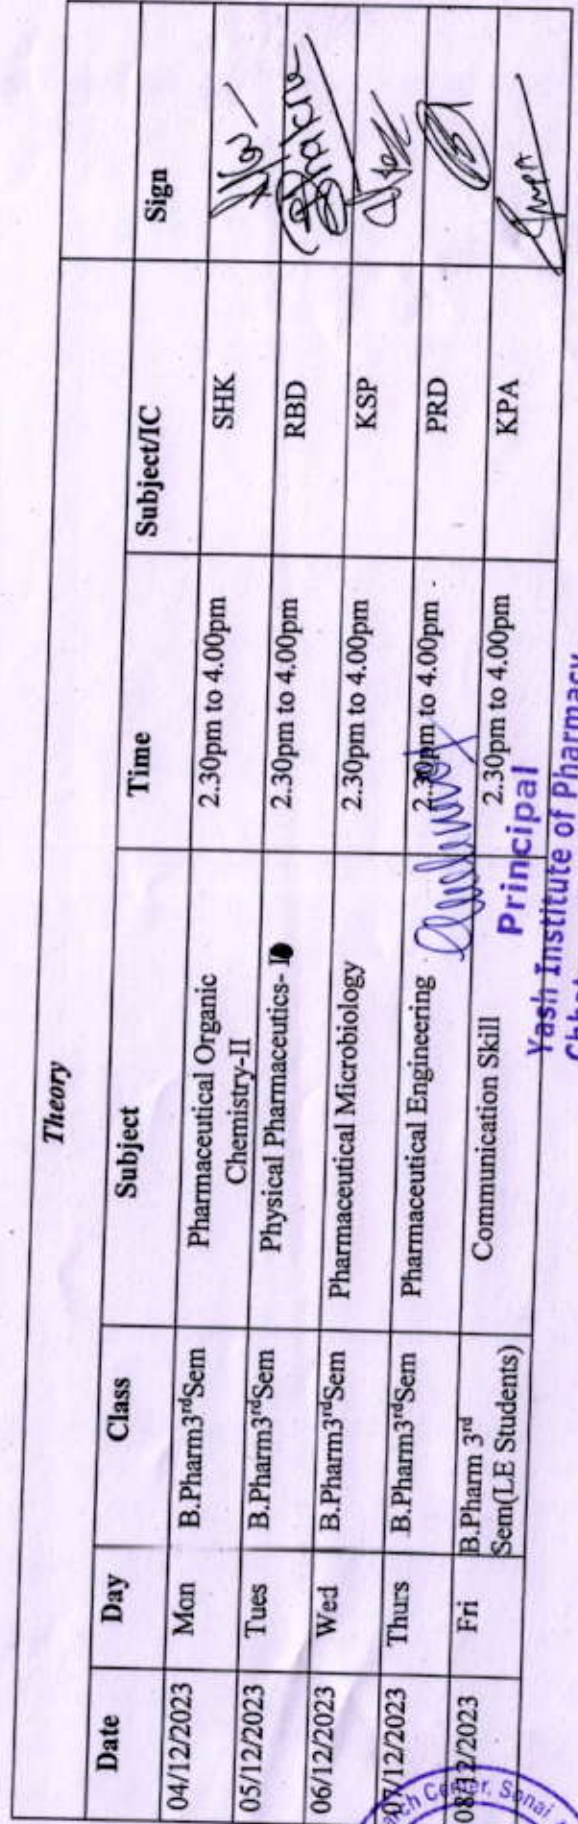 Theory
Date Day Class Subject Time Subject/IC Sign
04/12/2023 Mon B.Pharm3rdSem Pharmaceutical Organic Chemistry-II 2.30pm to 4.00pm SHK
05/12/2023 Tues B.Pharm3rdSem Physical Pharmaceutics- 2.30pm to 4.00pm RBD
06/12/2023 Wed B.Pharm3rdSem Pharmaceutical Microbiology 2.30pm to 4.00pm KSP
07/12/2023 Thurs B.Pharm3rdSem Pharmaceutical Engineering 2.30pm to 4.00pm PRD
08/12/2023 Fri B.Pharm 3rd Sem(LE Students) Communication Skill 2.30pm to 4.00pm KPA
Principal
Yash Institute of Pharmacy
Center, Sonai